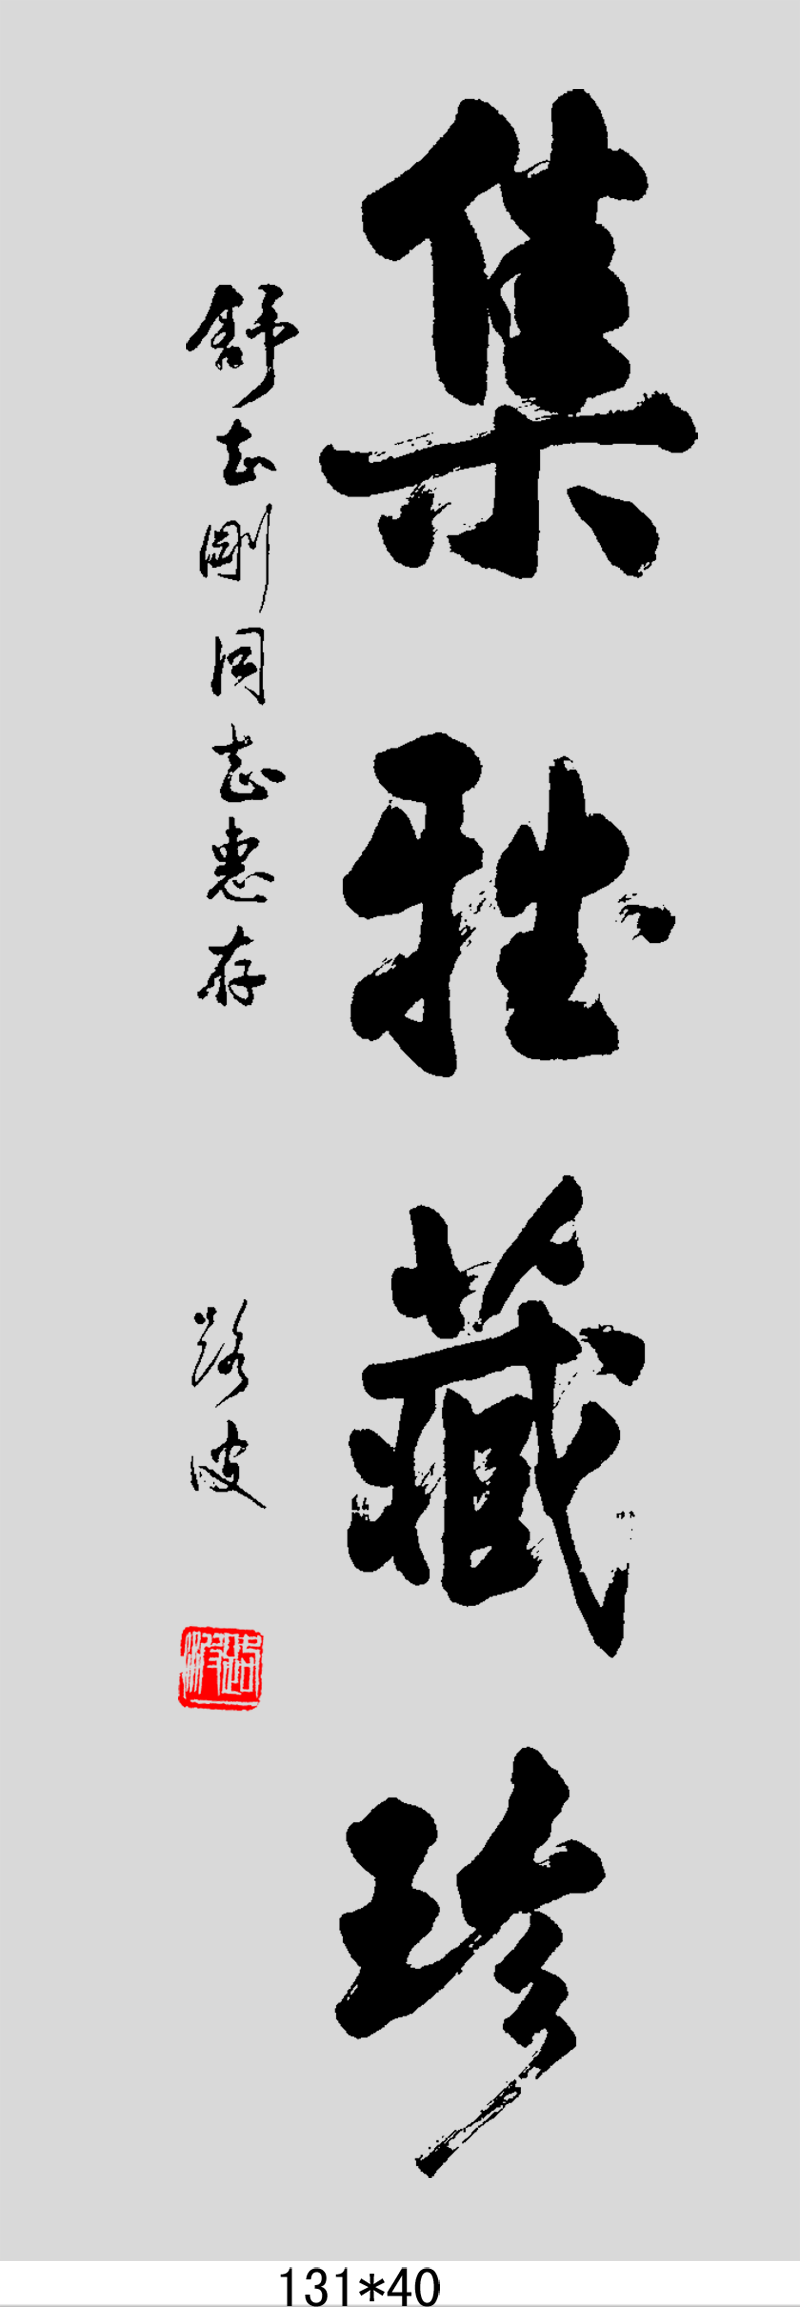 集雅藏珍
舒志剛同志惠存
路波
131*40